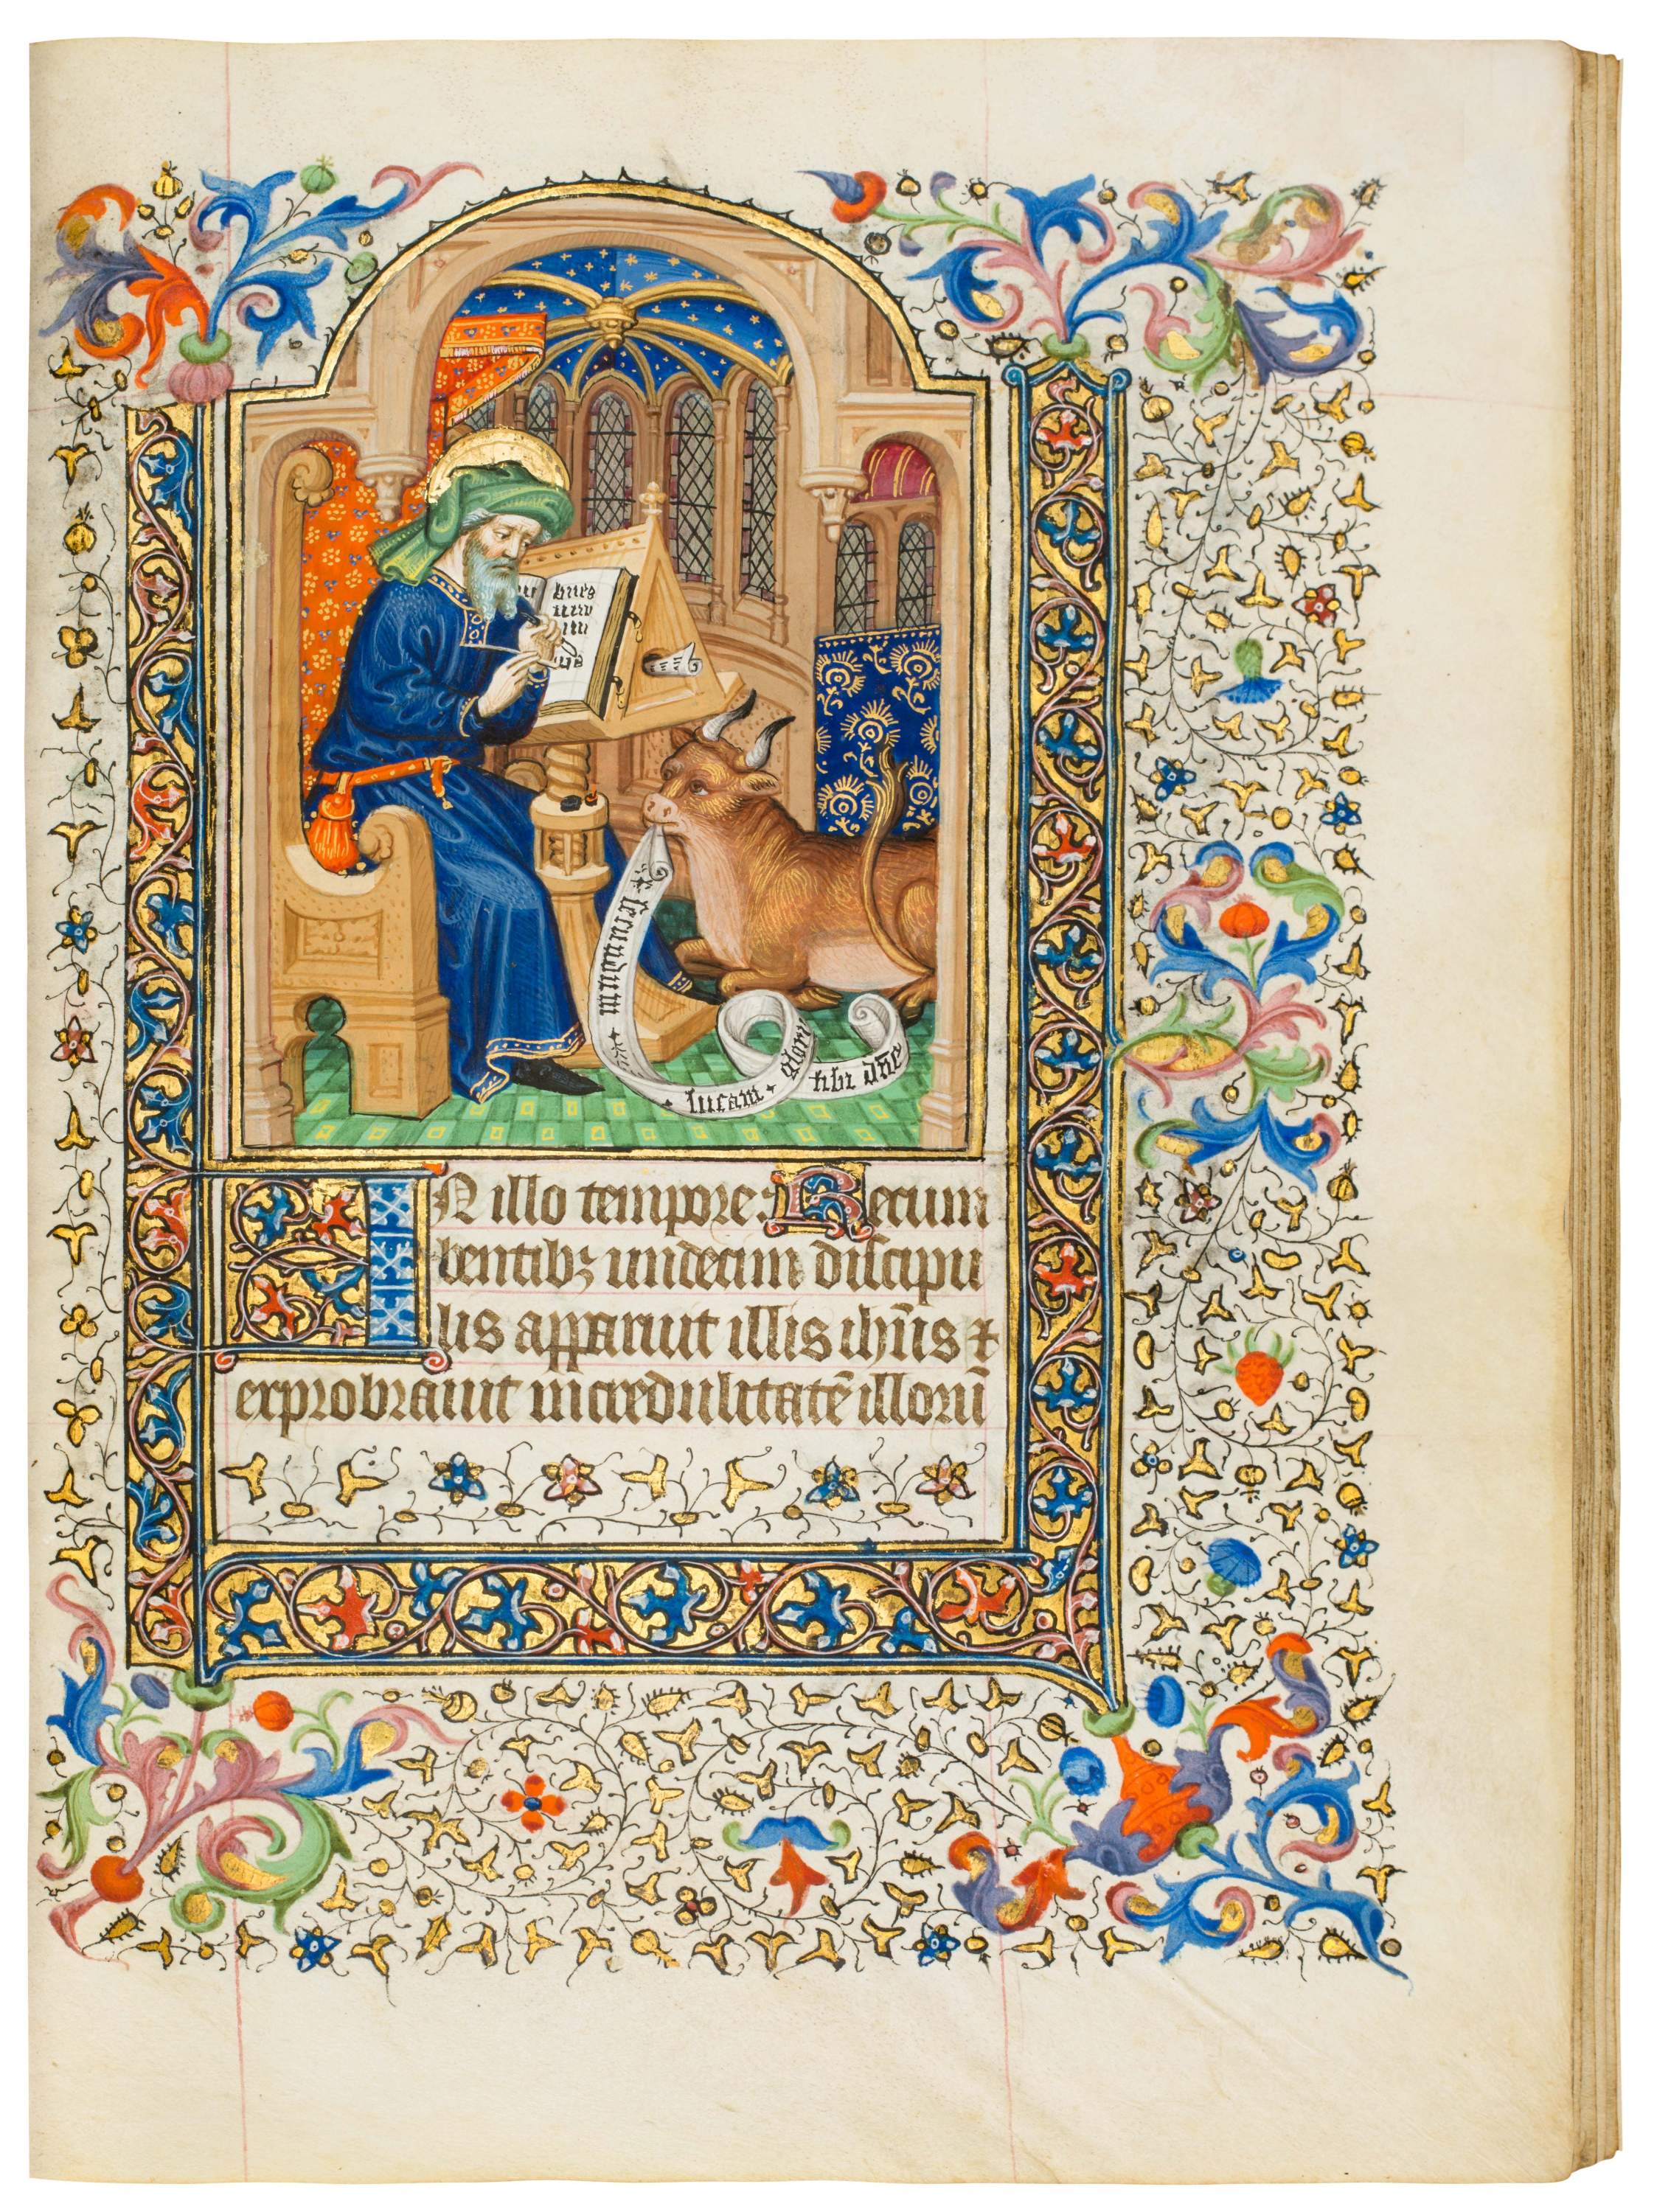 secundum
lucam glori
tibi dn̄e
IN illo tempore: Recum
bentibꝫ undecim discipu
lis apparuit illis ihūs ⁊
exprobrauit incredulitatē illorū